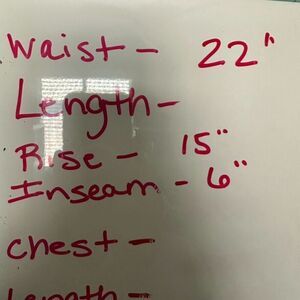 Waist - 22"
Length -
Rise - 15"
Inseam - 6"
chest -
Length -